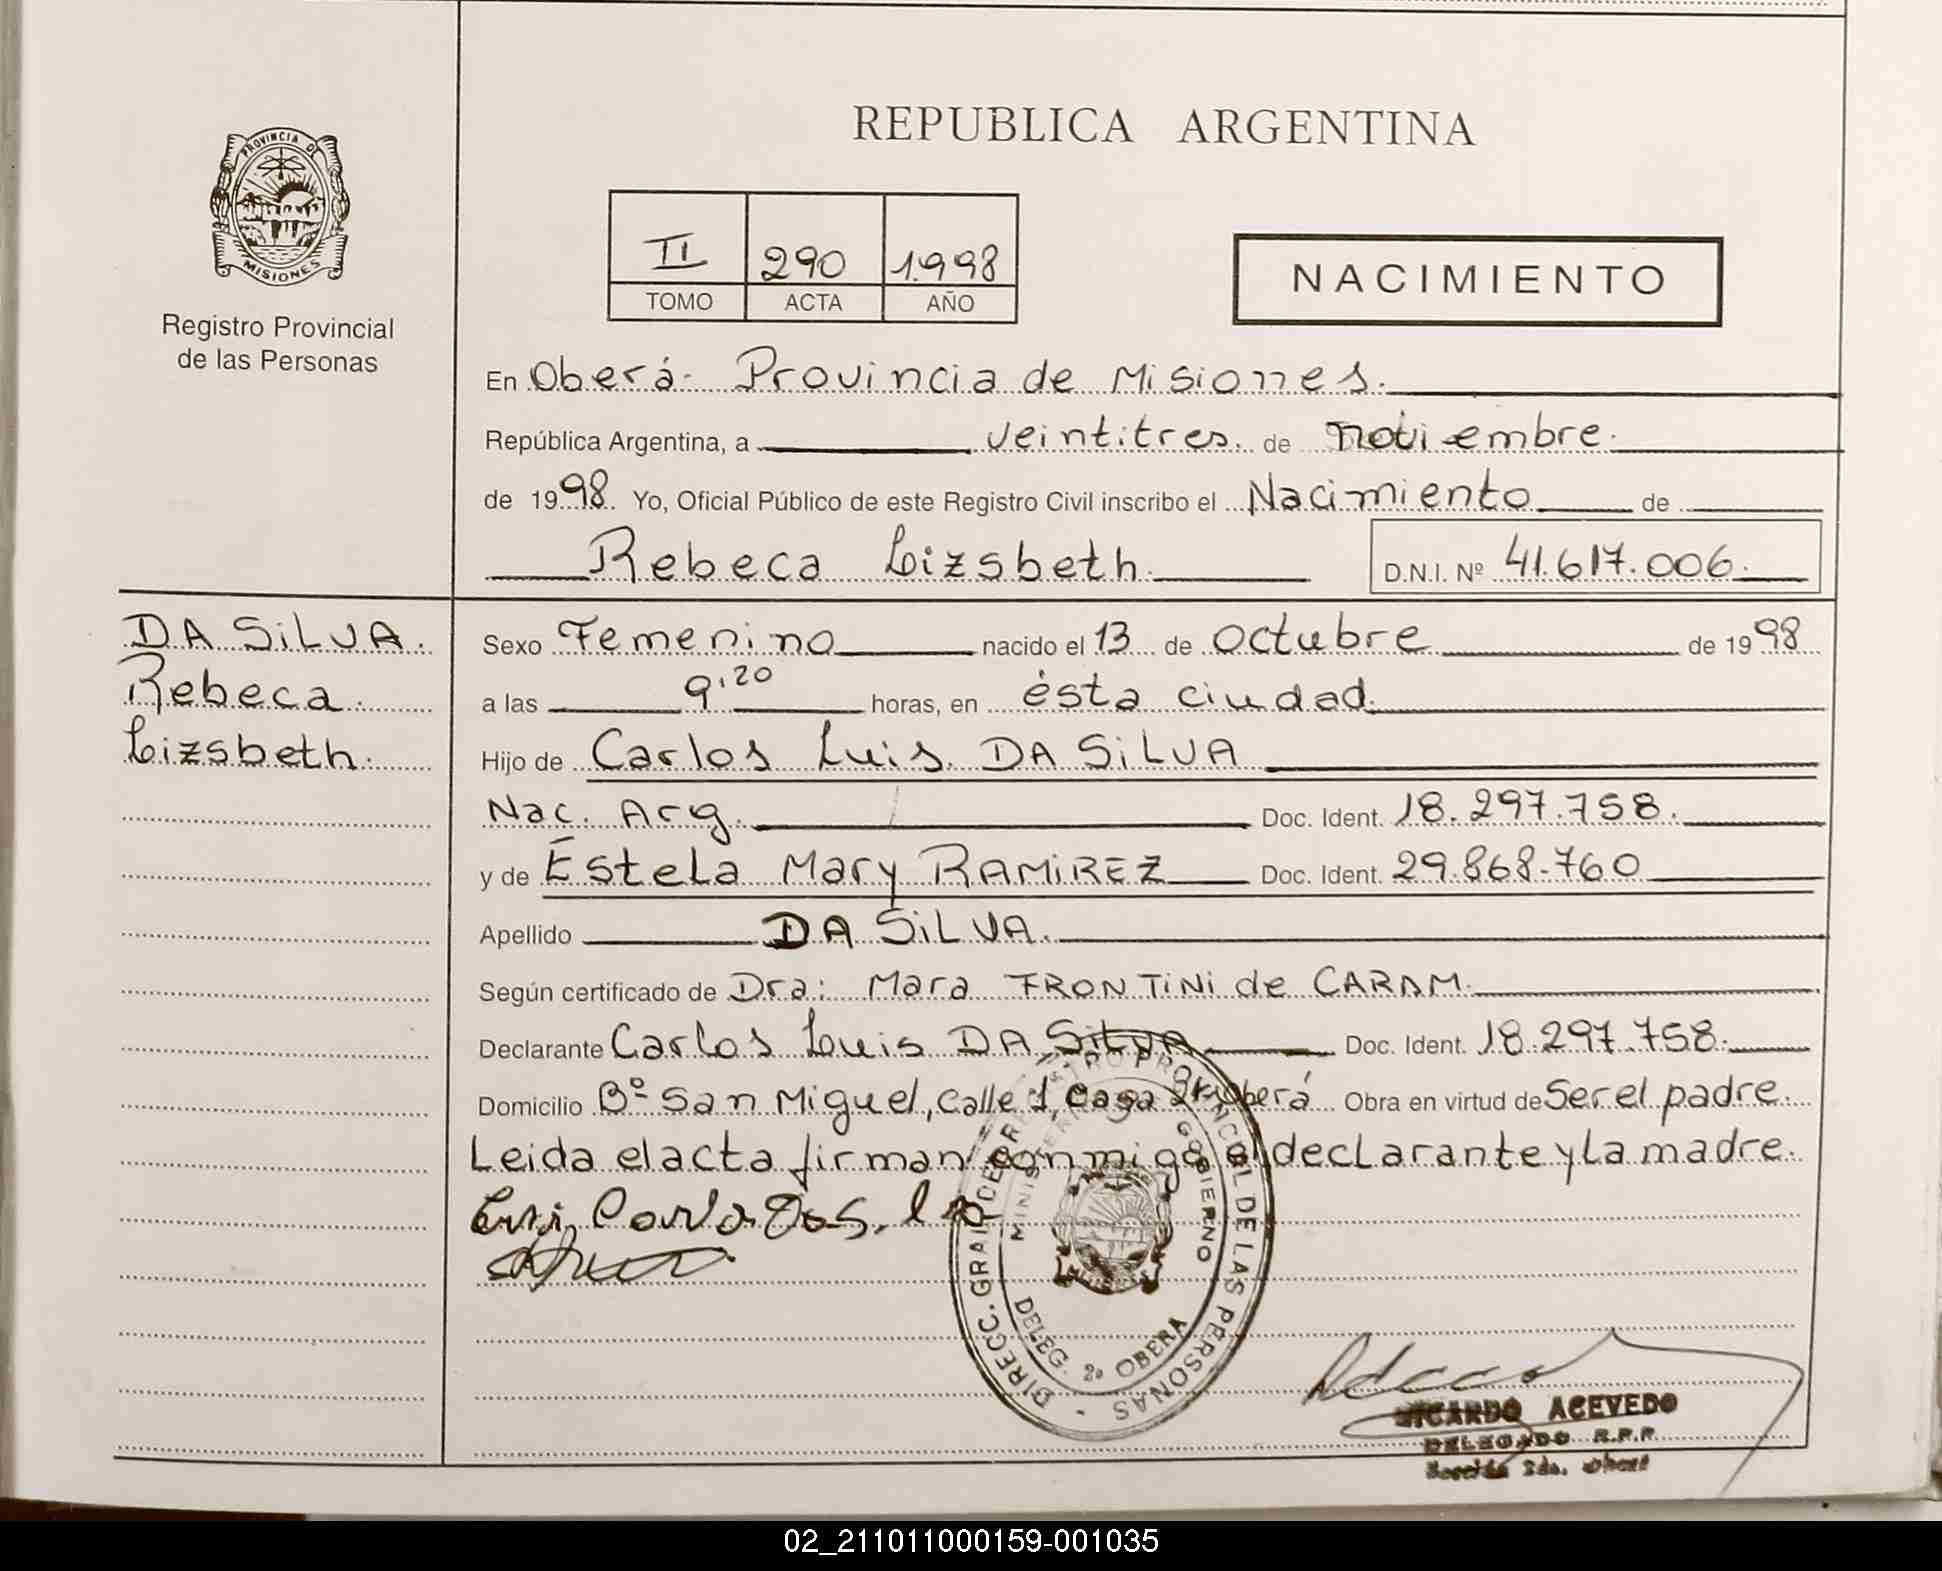 REPUBLICA ARGENTINA
PROVINCIA DE
MISIONES
Registro Provincial
de las Personas
II 290 1.998
TOMO ACTA AÑO
NACIMIENTO
En Oberá- Provincia de Misiones.
República Argentina, a veintitres de noviembre.
de 1998. Yo, Oficial Público de este Registro Civil inscribo el Nacimiento de
Rebeca Lizsbeth. D.N.I. Nº 41.617.006.
DA SiLVA.
Rebeca
Lizsbeth.
Sexo Femenino nacido el 13 de Octubre de 1998
a las 9,20 horas, en ésta ciudad.
Hijo de Carlos Luis DA SiLVA
Nac. Arg. Doc. Ident. 18.297.758.
y de Estela Mary RAMiREZ Doc. Ident. 29.868.760
Apellido DA SiLVA.
Según certificado de Dra: Mara FRONTiNi de CARAM.
Declarante Carlos Luis DA SiLVA Doc. Ident. 18.297.758.
Domicilio Bº San Miguel, calle 1, casa Oberá Obra en virtud de Ser el padre.
Leida el acta firman conmigo el declarante y la madre.
DIRECC. GRAL. DE REGISTRO PROVINCIAL DE LAS PERSONAS -
MINISTERIO GOBIERNO
DELEG. 2º OBERA
RICARDO ACEVEDO
DELEGADO R.P.P.
Sección 2da. Oberá
02_211011000159-001035